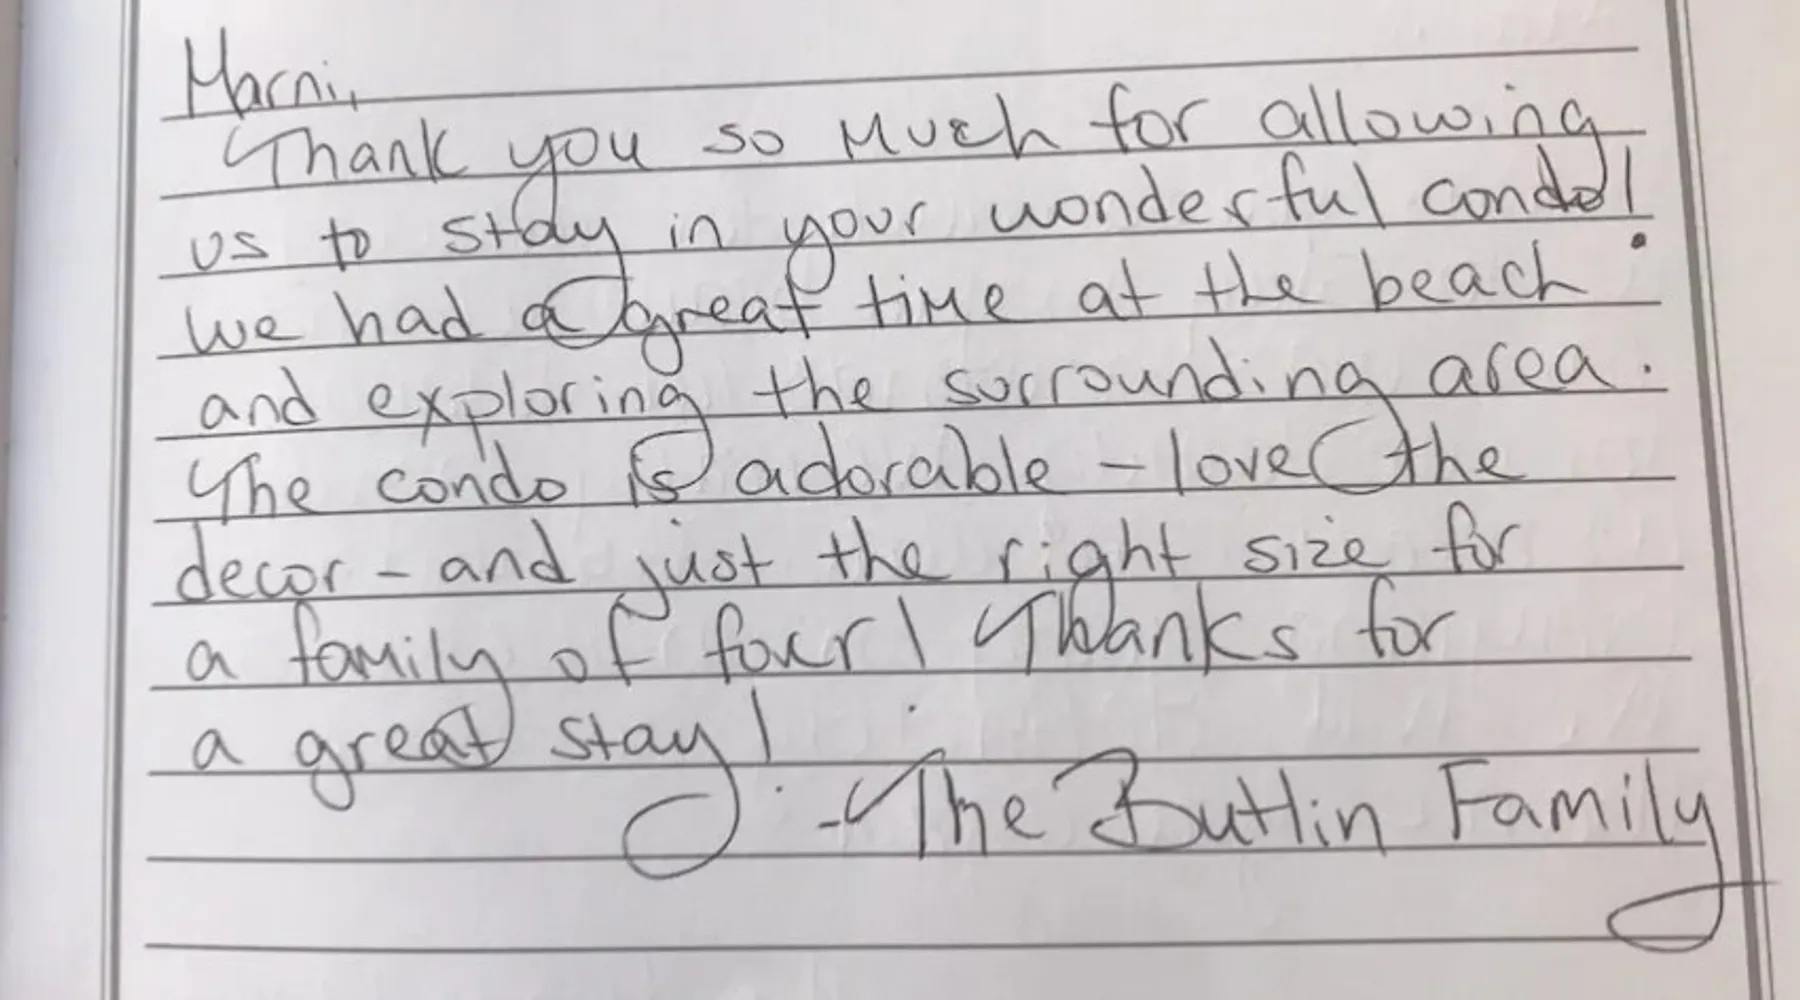 Marni,
Thank you so much for allowing
us to stay in your wonderful condo!
we had a great time at the beach
and exploring the surrounding area.
The condo is adorable - love the
decor - and just the right size for
a family of four! Thanks for
a great stay!
- The Butlin Family